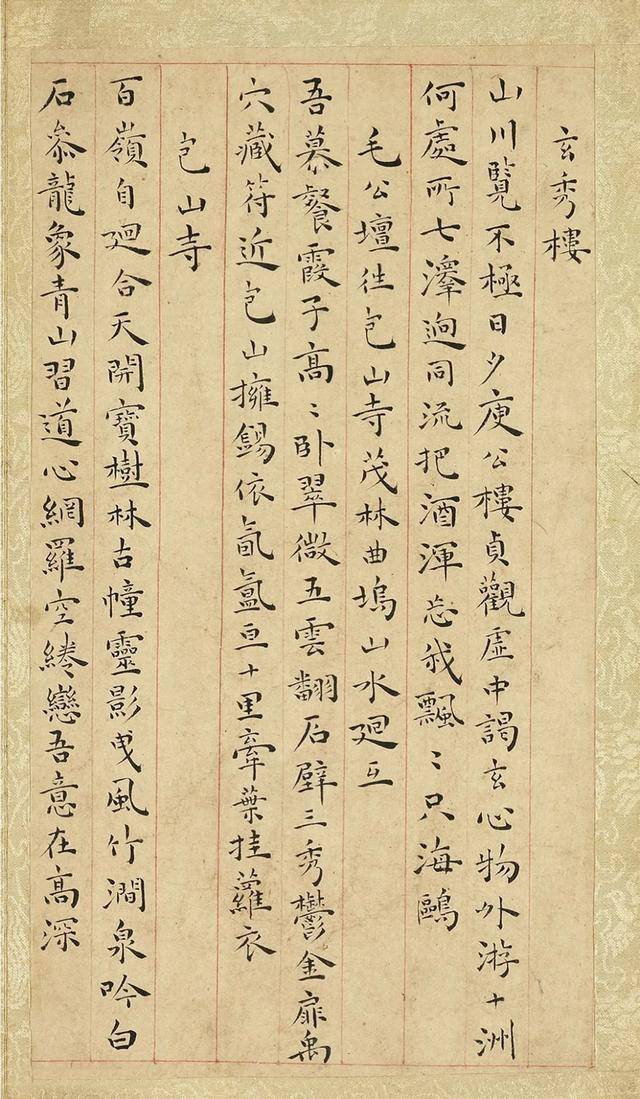 玄秀樓
山川覽不極日夕庾公樓貞觀虛中謁玄心物外游十洲
何處所七澤逈同流把酒渾忘我飄〻只海鷗
毛公壇往包山寺茂林曲塢山水廻互
吾慕餐霞子高〻卧翠微五雲翻石壁三秀鬱金扉禹
穴藏符近包山擁錫依氤氳亘十里牽葉挂蘿衣
包山寺
百嶺自廻合天開寶樹林古幢靈影曳風竹澗泉吟白
石叅龍象青山習道心網羅空綣戀吾意在高深